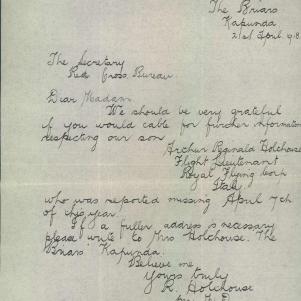 The Briars
Kapunda
21st April 1918.
The Secretary
Red Cross Bureau.
Dear Madam
We should be very grateful
if you would cable for further information
respecting our son
Archer Reginald Holthouse
Flight Lieutenant
Royal Flying Corps
Italy
who was reported missing April 7th
of this year.
If a fuller address is necessary
please write to Mrs Holthouse. The
Briars Kapunda.
Believe me
Yours truly
Holthouse
per